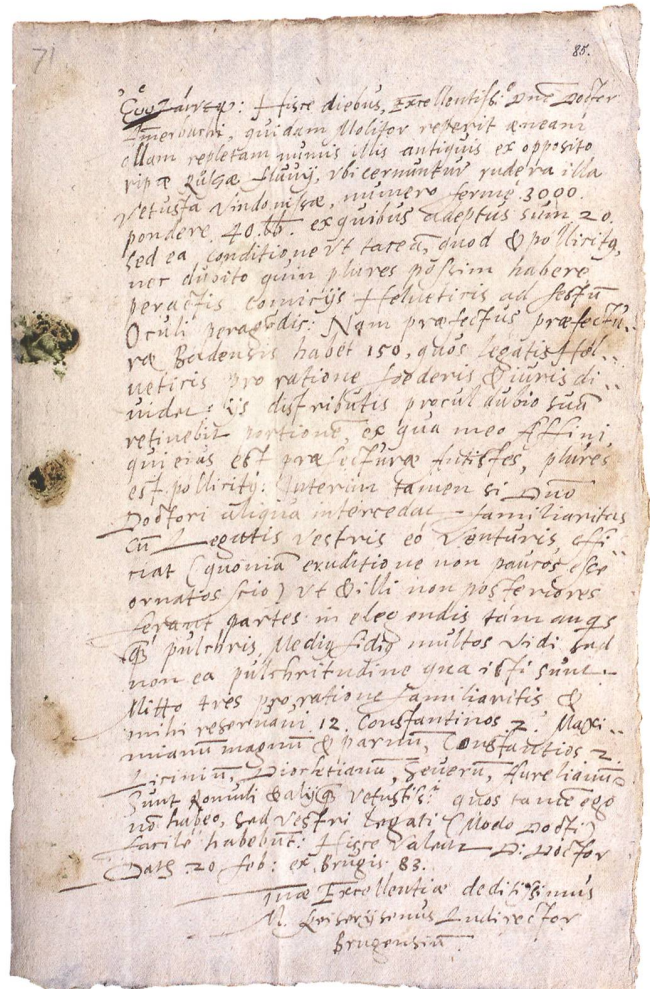 71
85.
Hisce diebus, Excellentiss: Dne Doctor
Amerbachi, quidam Molitor reperit æneam
ollam repletam numis illis antiquis ex opposito
ripæ Flauij, vbi cernuntur rudera illa
vetusta Vindonissæ, numero ferme 3000.
pondere 40. lb. ex quibus adeptus sum 20.
sed ea conditione vt taceā, quod & pollicitꝰ,
nec dubito quin plures possim habere
peractis comicijs Helueticis ad festū
Oculi peragēdis: Nam præfectus præfectu-
ræ Badensis habet 150, quos legatis Hel-
ueticis pro ratione foederis & iuris di-
uidet: ijs distributis procul dubio suā
retinebit portionē, ex qua meo Affini,
qui eius est præfecturæ Antistes, plures
est pollicitꝰ: Interim tamen si Dn̄o
Doctori aliqua intercedat familiaritas
cū Legatis vestris eo venturis effi-
ciat (quoniā eruditione non paucos esse
ornatos scio) vt & illi non posteriores
ferant partes in eligendis tam
pulchris, multos vidi sed
non ea pulchritudine qua isti sunt.
Mitto tres pro ratione familiaritis &
mihi reseruam 12. Constantinos 2. Maxi-
mianū magnū & parnū, Constantios 2
Licinium, Diocletianū, Seuerū, Aurelianū
Sunt Romuli & alijq̃ vetustis: quos tamē ego
nō habeo, sed vestri legati (Modo Docti)
facile habebūt: Hisce Valeat D: Doctor
Datæ 20 feb: ex Brugis 83.
Tuæ Excellentiæ deditissimus
Ludirector
Brugensiū